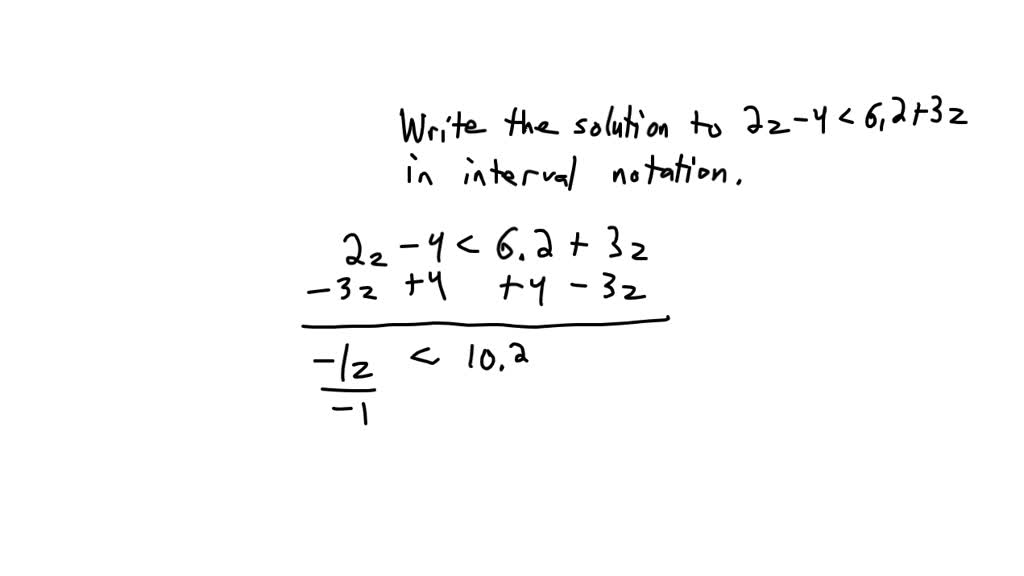 Write the solution to 2z-4<6.2+3z
in interval notation.
2z -4 < 6.2 + 3z
-3z +4 +4 - 3z
-1z < 10.2
-1